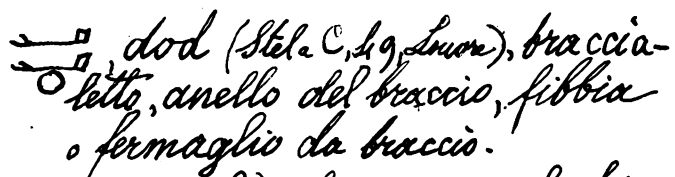 , dod (Stela C, 49, Louvre), braccia-
letto, anello del braccio, fibbia
o fermaglio da braccio.